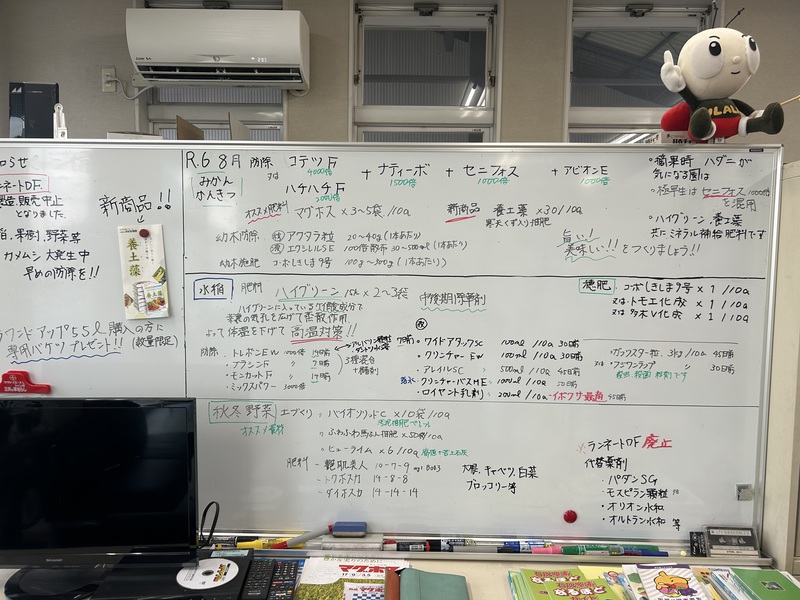 R.6 8月 防除 コテツF + ナティーボ + セニフォス + アビオンE
4000倍 1500倍 1000倍 1000倍
又は
ハチハチF
2000倍
みかん
かんきつ
オススメ肥料 マグホス×3~5袋/10a
新商品 養土藻×30/10a
寒天くず入り相肥
旨い!
美味しい!!をつくりましょう!!
幼木防除 アクタラ粒 20~40g(1本あたり)
エクシレルSE 100倍散布 30~500ml(1本あたり)
幼木施肥 コーボしきしま9号 100g~300g(1本あたり)
。摘果時 ハダニが
気になる園は
・極早生はセニフォス1000倍
を混用
。ハイグリーン、養土藻
共にミネラル補給肥料です
知らせ
ンネートDF.
製造、販売中止
となりました。
新商品!!
養土藻
稲、果樹、野菜等
カメムシ 大発生中
早めの防除を!!
ラウンドアップ5.5L購入の方に
専用バケツプレゼント!! (数量限定)
水稲 肥料 ハイグリーン 15k×2~3袋
ハイグリーンに入っている
葉裏の気孔を広げて蒸散作用
よって体温を下げて高温対策!!
防除 トレボンEW 1000倍 14日前
・ブラシンF 〃 7日前
・モニカットF 〃 14日前
・ミックスパワー 3000倍
3種混合
+機能剤
中後期除草剤
・ワイドアタックSC 100ml/10a 30日前
・クリンチャーEW 100ml/10a 30日前
・アレイルSC 500ml/10a 45日前
・クリンチャーバスME 1000ml/10a 50日前
・ロイヤント乳剤 200ml/10a -イボクサ最高 45日前
施肥 コーボしきしま9号×1/10a
又は トモエ化成×1/10a
又は 多木V化成×1/10a
・ガッツスター粒 3kg/10a 45日前
又は ・フジワンラップ 〃 30日前
秋冬野菜 土づくり 。バイオソリッドC ×10袋/10a
オススメ資材
。ふわふわ馬ふん堆肥×50袋/10a
。ヒューライム×6/10a 腐植+苦土石灰
肥料 - 艶肌美人 10-7-9
- トクホスカ 14-8-8
- ダイホスカ 14-14-14
大根、キャベツ、白菜
ブロッコリー等
※ランネートDF 廃止
代替薬剤
・パダンSG
・モスピラン顆粒
・オリオン水和
・オルトラン水和 等
マグホス